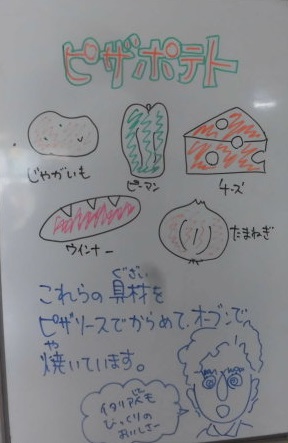 ピザポテト
じゃがいも
ピーマン
チーズ
ウインナー
たまねぎ
ぐざい
これらの具材を
ピザソースでからめて、オーブンで
や
焼いています。
イタリア人も
びっくりの
おいしさー